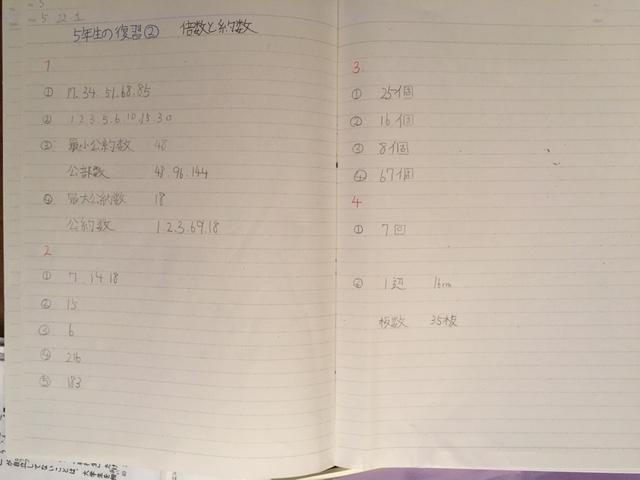 5 22 1
5年生の復習② 倍数と約数
1
① 17.34.51.68.85
② 1.2.3.5.6.10.15.30
③ 最小公約数 48
公部数 48.96.144
④ 最大公約数 18
公約数 1.2.3.6.9.18
2
① 7.14.18
② 15
③ 6
④ 216
⑤ 183
3
① 25個
② 16個
③ 8個
④ 67個
4
① 7回
② 1辺 16cm
板数 35枚